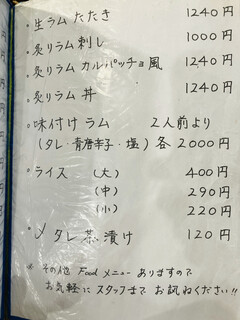 ・生ラム たたき 1240円
・炙りラム刺し 1000円
・炙りラム カルパッチョ風 1240円
・炙りラム丼 1240円
・味付け ラム 2人前より
(タレ・青唐辛子・塩) 各 2000円
・ライス (大) 400円
(中) 290円
(小) 220円
・〆 タレ茶漬け 120円
※ その他 Food メニュー ありますので
お気軽に スタッフまで お訊ねください!!